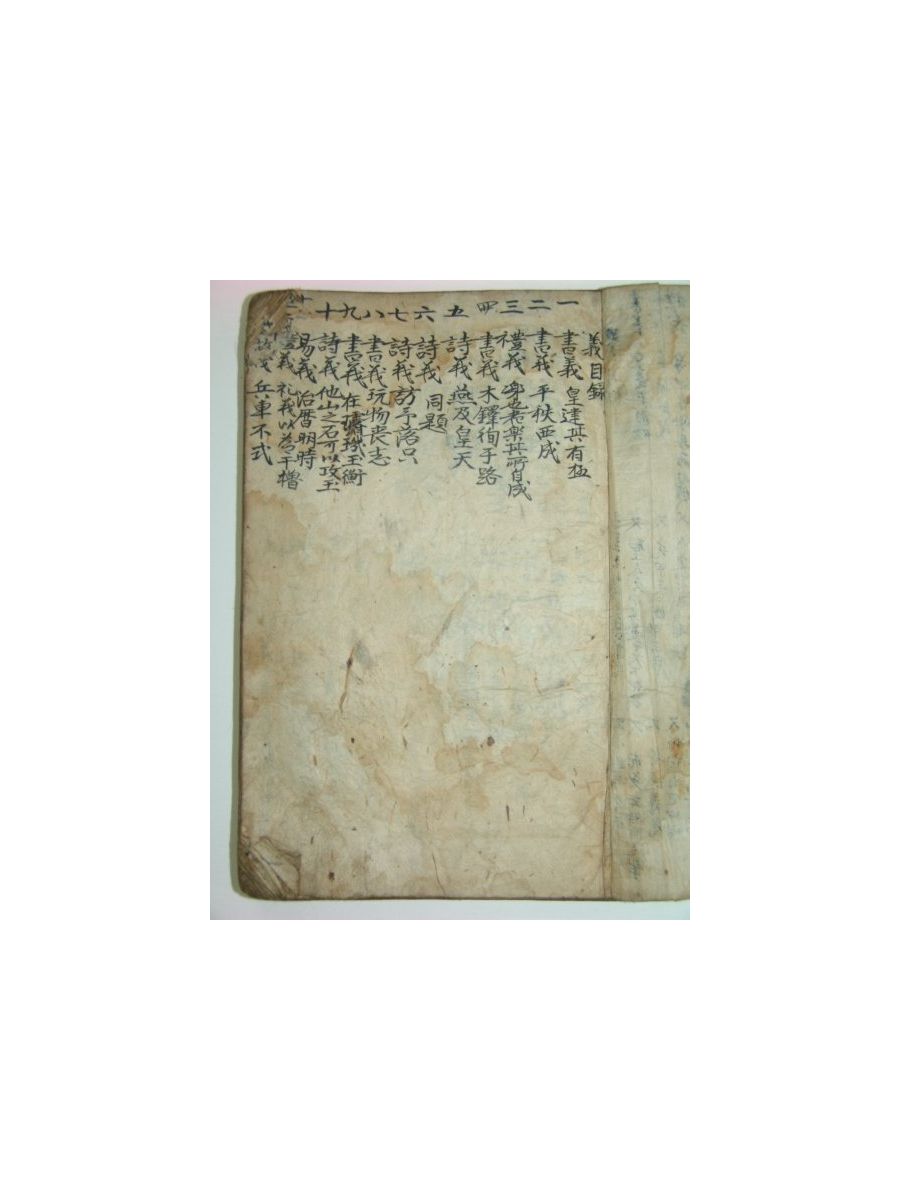 義目錄
一 書義 皇建其有極
二 書義 平秩西成
三 禮義 樂其所自成
四 書義 木鐸徇于路
五 詩義 燕及皇天
六 詩義 同題
七 詩義 訪予落只
八 書義 玩物喪志
九 書義 在璿璣玉衡
十 詩義 他山之石可以攻玉
易義 治曆明時
義 礼義以爲干櫓
義 兵車不式